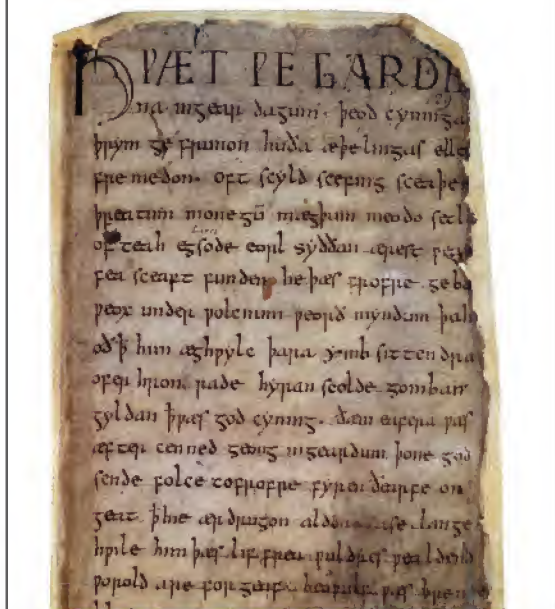 HǷÆT ǷE GARDE
na ingear dagum. þeod cyninga
þrym ge frunon huða æþelingas elle
fremedon. oft scyld scefing sceaþe
þreatum monegū mægþum meodo setl
of teah egsode eorl syððan ærest ƿea
fea sceaft funden he þæs frofre geba
ƿeox under ƿolcnum ƿeorð myndum þah
oð ꝥ him æghƿylc þara ymb sittendra
ofer hron rade hyran scolde gomban
gyldan ꝥ ƿæs god cyning. ðæm eafera ƿæs
æfter cenned geong ingeardum þone god
sende folce tofrofre fyren ðearfe on
geat ꝥ hie ær drugon aldor ase lange
hƿile him þæs lif frea ƿuldres ƿealdend
ƿorold are for geaf. beoƿulf ƿæs breme